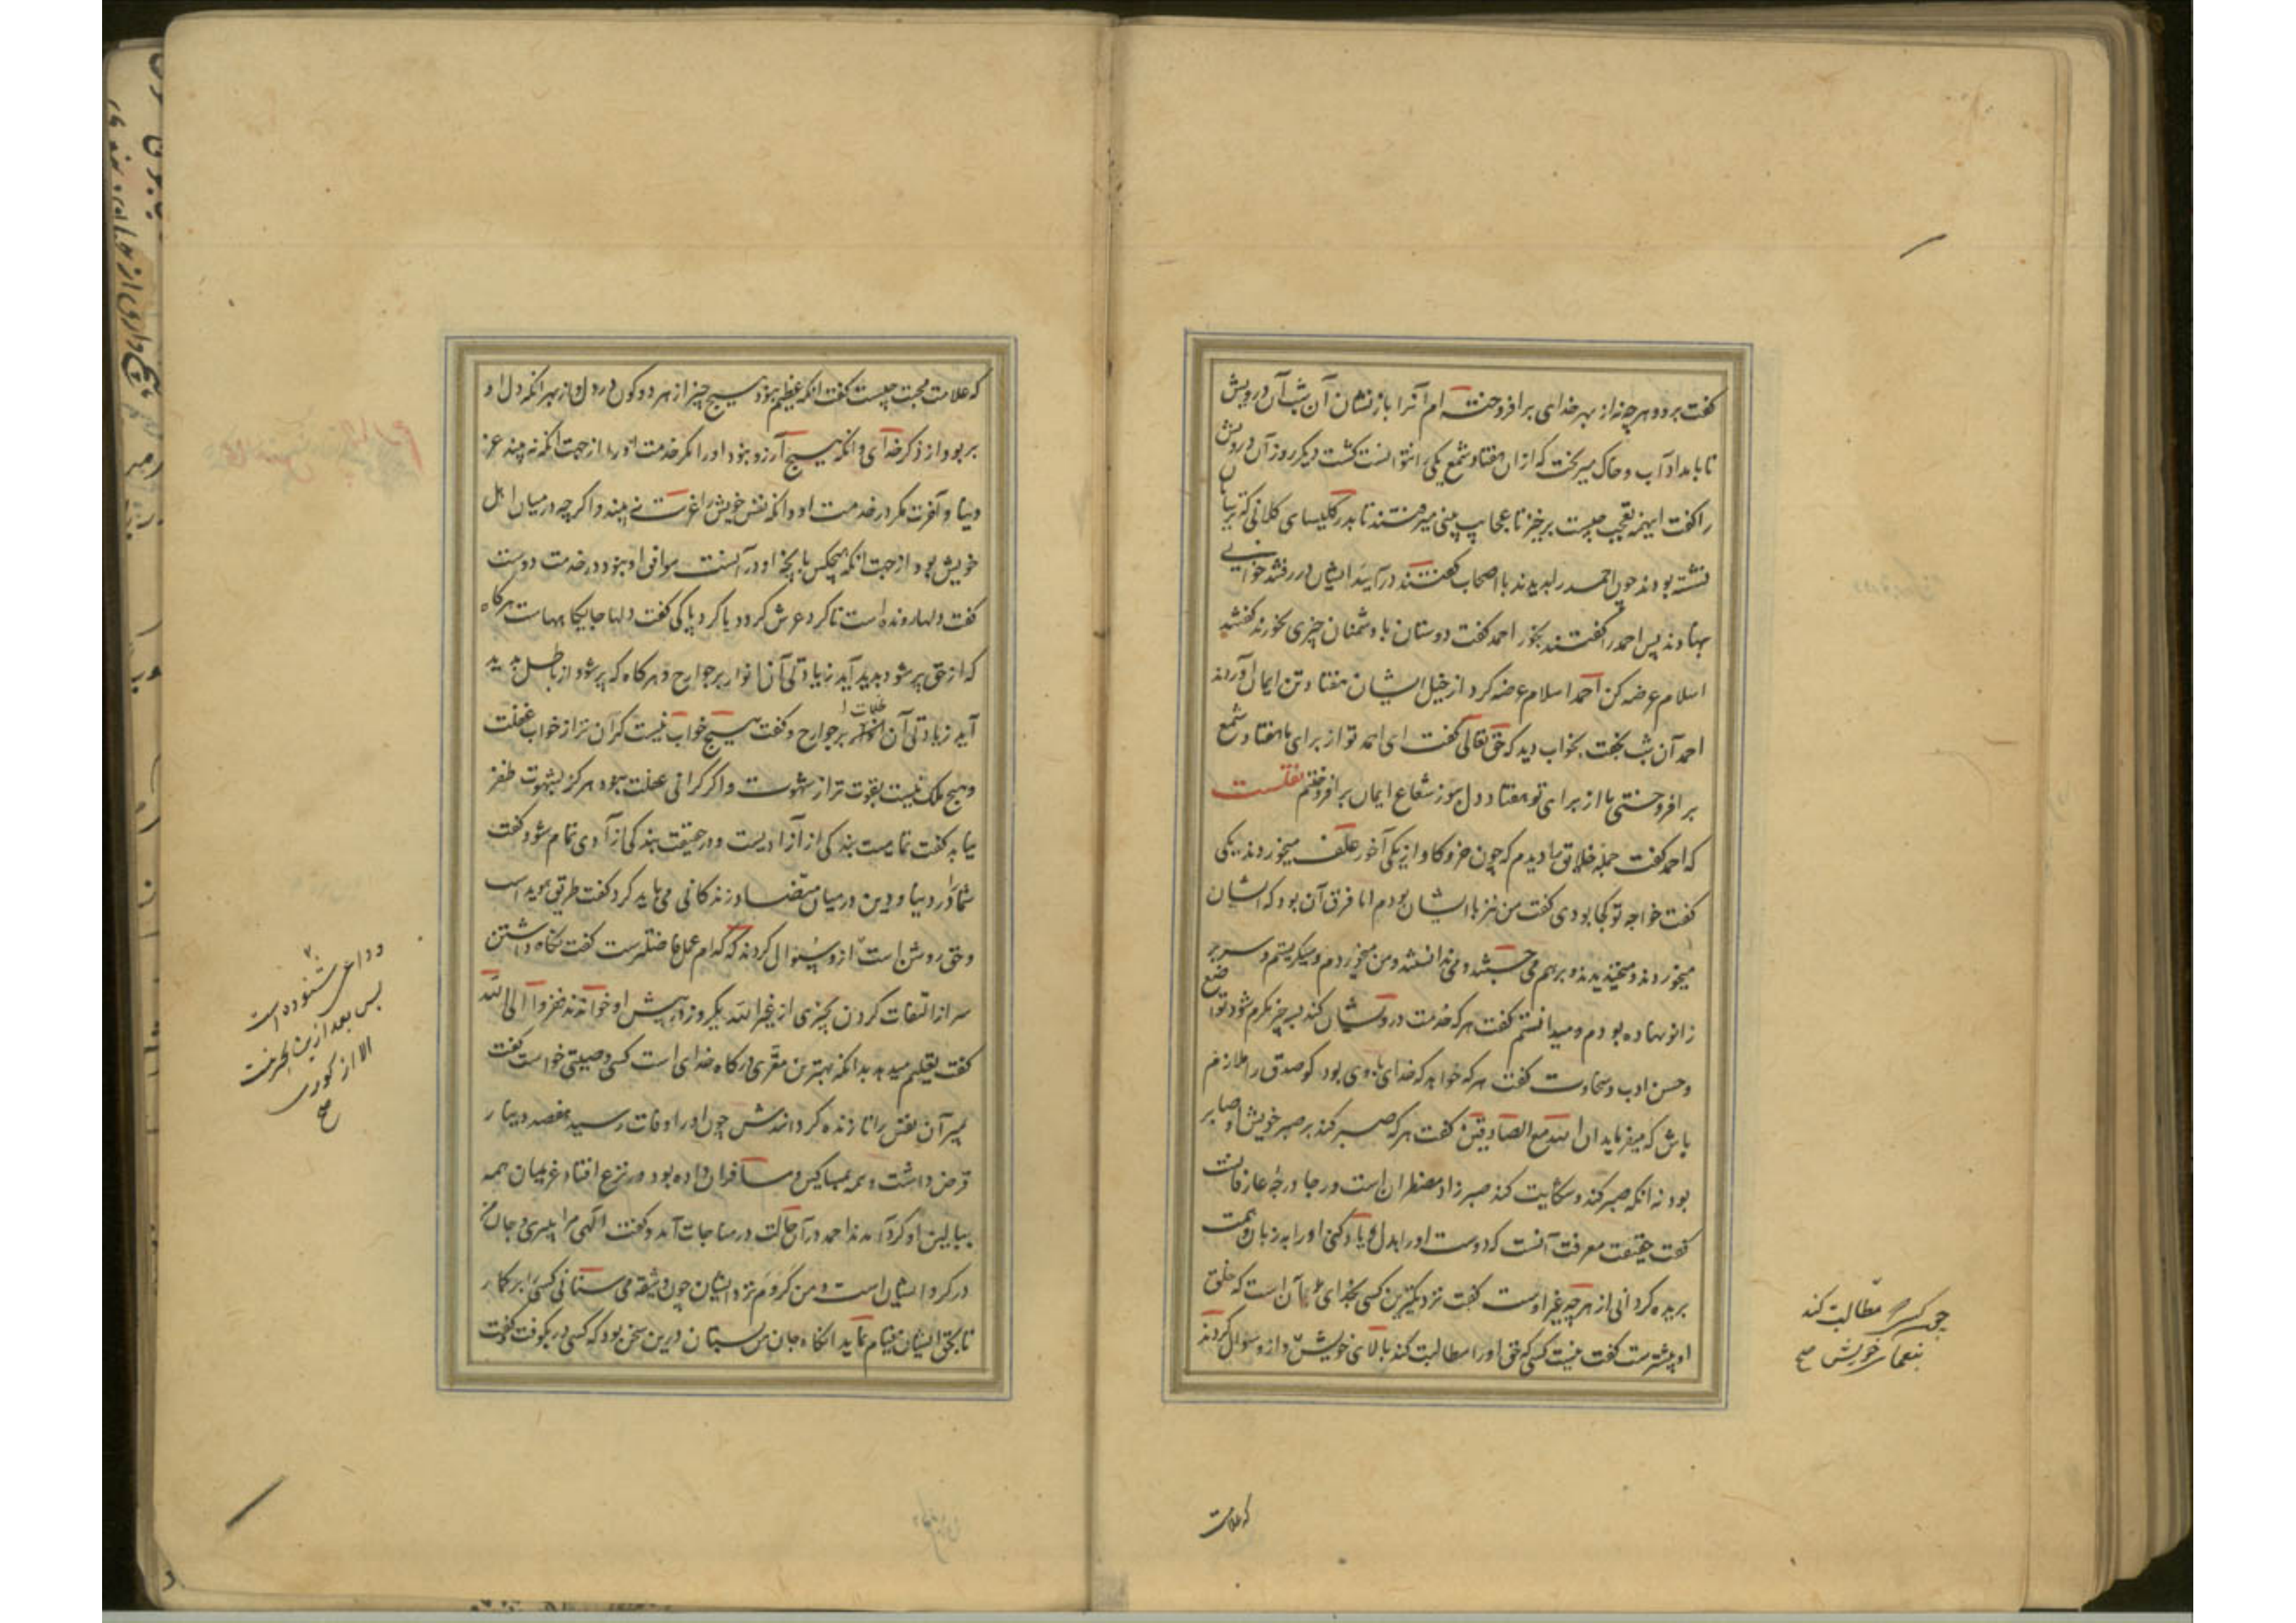 گفت برو و هر چه نه از بهر خدای برافروخته ام آنرا باز نشان آن شب آن درویش
تا بامداد آب و خاک میریخت که از ان هفتاد شمع یکی را نتوانست کشت دیکر روز آن درویش
را گفت اینهمه تعجب چیست برخیز تا عجایب بینی میرفتند تا بدر کلیسای کلانی که ترسایان
نشسته بودند چون احمد را بدیدند با اصحاب گفتند درآیید ایشان در رفتند خوانی
بنهادند پس احمد را گفتند بخور احمد گفت دوستان با دشمنان چیزی نخورند گفتند
اسلام عرضه کن احمد اسلام عرضه کرد از خیل ایشان هفتاد تن ایمان آوردند
احمد آن شب بخفت بخواب دید که حق تعالی گفت ای احمد تو از برای ما هفتاد شمع
برافروختی ما از برای تو هفتاد دل بنور شعاع ایمان برافروختیم نقلست
که احمد گفت جمله خلایق را دیدم که چون خر و کاو از یکی آخور علف میخوردند یکی
گفت خواجه تو کجا بودی گفت من نیز با ایشان بودم اما فرق آن بود که ایشان
میخوردند و میخندیدند و بر هم می جستند و نمی دانستند و من میخوردم و میکریستم و سر بر
زانو نهاده بودم و میدانستم گفت هر که خدمت درویشان کند بسه چیز مکرم شود تواضع
و حسن ادب و سخاوت گفت هر که خواهد که خدای با وی بود کو صدق را ملازم
باش که میفرماید ان الله مع الصادقین گفت هر که صبر کند بر صبر خویش او صابر
بود نه انکه صبر کند و شکایت کند صبر زاد مضطران است و رجا درجه عارفانست
گفت حقیقت معرفت آنست که دوست اورا بدل و یاد کنی اورا به زبان و همت
بریده کردانی از هر چه غیر اوست گفت نزدیکترین کسی بخدای آن است که خلق
او بیشترست گفت نیست کسی که حق اورا مطالبت کند بآلای خویش و ازو سوال کردند
مطالبت کند
بنعمای خویش صح
که علامت
که علامت محبت چیست گفت انکه عظیم نبود هیچ چیز از هر دو کون در دل او از بهر انکه دل او
پر بود از ذکر خدای و انکه هیچ آرزو نبود اورا مکر خدمت اورا از جهت انکه نه بیند عز
دنیا و آخرت مکر در خدمت او و انکه نفس خویش را غریب بیند و اکر چه در میان اهل
خویش بود از جهت انکه هیچکس بانچه او در آنست موافق او نبود در خدمت دوست
گفت دلها رونده است تا کرد عرش کردد یا کرد پاکی گفت دلها جایکاهاست هرگاه
که از حق پر شود پدید آید زیادتی آن انوار بر جوارح و هرکاه که پر شود از باطل پدید
آید زیادتی آن ظلمات بر جوارح و گفت هیچ خواب نیست کران تر از خواب غفلت
و هیچ ملک نیست بقوت تر از شهوت و اکر کرانی غفلت نبود هرکز شهوت ظفر
نیابد گفت تمامیت بندکی از آزادیست و در حقیقت بندکی آزادی تمام شود گفت
شما را در دنیا و دین در میان متضاد زندکانی می باید کرد گفت طریق هویداست
و حق روشن است ازو سوال کردند که کدام عمل فاضلترست گفت نکاه داشتن
سر از التفات کردن بچیزی از غیر الله یکروز در پیش او خواندند ففروا الی الله
گفت تعلیم میدهد بدانکه بهترین مفری درکاه خدای است کسی وصیتی خواست گفت
بمیر آن نفس را تا زنده کردانندش چون اورا وفات رسید هفصد دینار
قرض داشت همه بمساکین و مسافران داده بود در نزع افتاد غریمان همه
ببالین او کرد آمدند احمد در آن حالت در مناجات آمد و گفت الهی مرا میبری و جان من
در کرو ایشان است و من کروم نزد ایشان چون وثیقه می ستانی کسی را برکمار
تا بحق ایشان قیام نماید انکاه جان من بستان درین سخن بود که کسی در بکوفت و گفت
شنوده است
پس بعد ازین
الا از کوری
صح